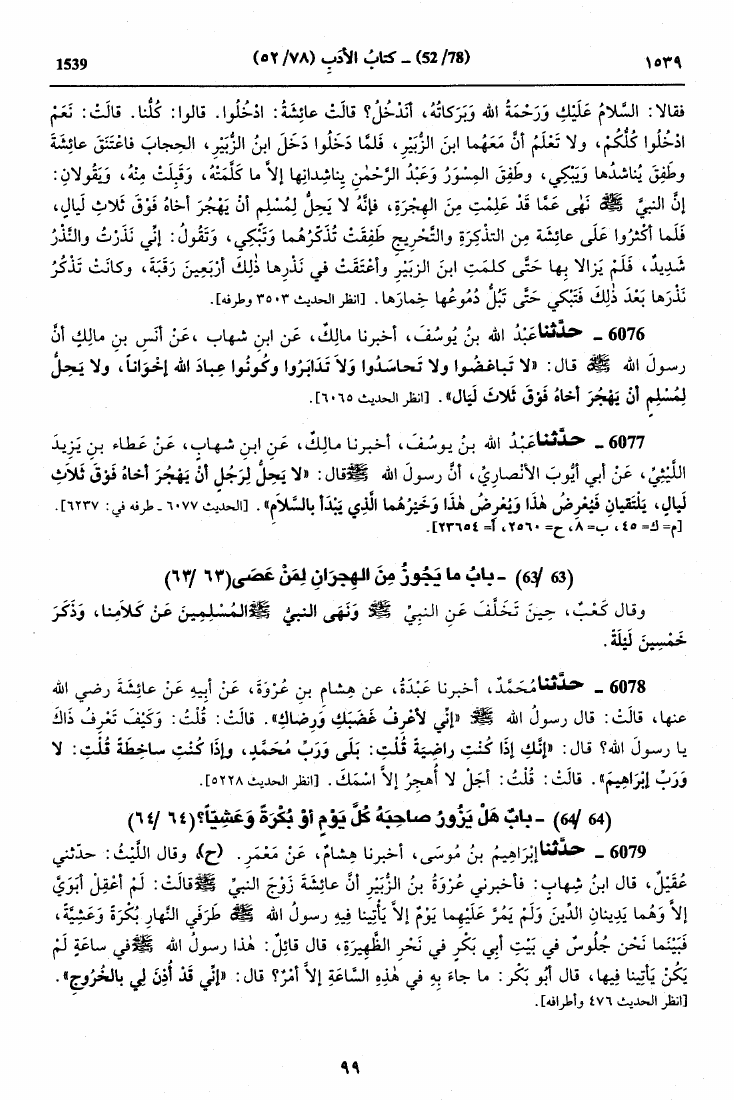 ١٥٣٩ (52/78) ـ كتابُ الأدَبِ (٥٢/٧٨) 1539
فقالا: السَّلامُ عَلَيْكِ وَرَحْمَةُ الله وَبَرَكاتُهُ، أنَدْخُلُ؟ قالَتْ عائِشَةُ: ادْخُلُوا. قالوا: كُلُّنا. قالَتْ: نَعَمْ
ادْخُلُوا كُلُّكُمْ، ولا تَعْلَمُ أنَّ مَعَهُما ابنَ الزُّبَيْرِ، فَلمَّا دَخَلُوا دَخَلَ ابنُ الزُّبَيْرِ، الحِجابَ فاعْتَنَقَ عائِشَةَ
وطَفِقَ يُناشدُها وَيَبْكِي، وطَفِقَ المِسْوَرُ وَعَبْدُ الرَّحْمٰنِ يناشِدانِها إلاَّ ما كَلَّمَتْهُ، وَقَبِلَتْ مِنْهُ، وَيَقُولانِ:
إنَّ النبيَّ ﷺ نَهٰى عَمَّا قَدْ عَلِمْتِ مِنَ الهِجْرَةِ، فإنَّهُ لا يَحِلُّ لِمُسْلِمٍ أنْ يَهْجُرَ أخاهُ فَوْقَ ثَلاثِ لَيالٍ،
فَلَما أكْثَرُوا عَلٰى عائِشَة مِن التذكِرَةِ والتَّحْرِيجِ طَفِقَتْ تُذَكِّرُهُما وَتَبْكِي، وَتَقُولُ: إنِّي نَذَرْتُ والنَّذْرُ
شَدِيدٌ، فَلَمْ يَزالا بِها حَتَّى كلمَتِ ابنَ الزبَيْرِ وأعْتَقَتْ في نَذْرِها ذٰلِكَ أرْبَعِينَ رَقَبَةً، وكانَتْ تَذْكُرُ
نَذْرَها بَعْدَ ذٰلِكَ فَتَبْكِي حَتَّى تَبُلَّ دُمُوعُها خِمارَها. [انظر الحديث ٣٥٠٣ وطرفه].
6076 ـ حدَّثنا عَبْدُ الله بنُ يُوسُفَ، أخبرنا مالِكٌ، عَن ابنِ شهاب، عَنْ أنَسِ بنِ مالِكٍ أنَّ
رسولَ الله ﷺ قال: «لا تَباغَضُوا ولا تَحاسَدُوا وَلاَ تَدَابَرُوا وكُونُوا عِبادَ الله إخْوَاناً، ولا يَحِلُّ
لِمُسْلِمٍ أنْ يَهْجُرَ أخاهُ فَوْقَ ثَلاثَ لَيَال». [انظر الحديث ٦٠٦٥].
6077 ـ حدَّثنا عَبْدُ الله بنُ يوسُفَ، أخبرنا مالِكٌ، عَنِ ابنِ شهابٍ، عَنْ عَطاء بنِ يَزِيدَ
اللَّيْثِيِّ، عَنْ أبي أيُّوبَ الأنْصارِيِّ، أنَّ رسولَ الله ﷺ قال: «لا يَحِلُّ لِرَجُلٍ أنْ يَهْجُرَ أخاهُ فَوْقَ ثَلاثِ
لَيالٍ، يَلْتَقيانِ فَيُعْرِضُ هٰذا وَيُعْرِضُ هٰذا وَخَيْرُهُما الَّذِي يَبْدَأُ بالسَّلاَمِ». [الحديث ٦٠٧٧ ـ طرفه في: ٦٢٣٧].
[م= ك= ٤٥، ب= ٨، ح= ٢٥٦٠، أ= ٢٣٦٥٤].
(63/63) ـ بابُ ما يَجُوزُ مِنَ الهِجرَانِ لِمَنْ عَصَى (٦٣/٦٣)
وقال كَعْبٌ، حِينَ تَخَلَّفَ عَنِ النبيِّ ﷺ وَنَهَى النبيُّ ﷺ المُسْلِمِينَ عَنْ كَلامِنا، وَذَكَرَ
خَمْسِينَ لَيْلَةً.
6078 ـ حدَّثنا مُحَمَّدٌ، أخبرنا عَبْدَةُ، عن هِشامِ بنِ عُرْوَةَ، عَنْ أبِيهِ عَنْ عائِشَةَ رضي الله
عنها، قالَتْ: قال رسولُ الله ﷺ «إنِّي لأعْرِفُ غَضَبَكِ وَرِضاكِ». قالَتْ: قُلْتُ: وَكَيْفَ تَعْرِفُ ذَاكَ
يا رسولَ الله؟ قال: «إنَّكِ إذَا كُنْتِ راضِيَةً قُلْتِ: بَلَى وَرَبِّ مُحَمَّدٍ، وإذَا كُنْتِ ساخِطَةً قُلْتِ: لا
وَرَبِّ إبْرَاهِيمَ». قالَتْ: قُلْتُ: أجَلْ لا أُهجِرُ إلاَّ اسْمَكَ. [انظر الحديث ٥٢٢٨].
(64/64) ـ بابٌ هَلْ يَزُورُ صاحِبَهُ كُلَّ يَوْمٍ أوْ بُكْرَةً وَعَشِيّاً؟ (٦٤/٦٤)
6079 ـ حدَّثنا إبْرَاهِيمُ بنُ مُوسَى، أخبرنا هِشامٌ، عَنْ مَعْمَرٍ. (ح)، وقال اللَّيْثُ: حدّثني
عُقَيْلٌ، قال ابنُ شِهابٍ: فأخبرني عُرْوَةُ بنُ الزُّبَيْرِ أنَّ عائِشَةَ زَوْجَ النبيِّ ﷺ قالَتْ: لَمْ أعْقِلْ أبَوَيَّ
إلاَّ وَهُما يَدِينانِ الدِّينَ وَلَمْ يَمُرَّ عَلَيْهِما يَوْمٌ إلاَّ يأْتِينا فِيهِ رسولُ الله ﷺ طَرَفَيِ النَّهارِ بُكْرَةً وَعَشِيَّةً،
فَبَيْنَما نَحْن جُلُوسٌ في بَيْتِ أبي بَكْرٍ في نَحْرِ الظَّهِيرَةِ، قال قائِلٌ: هٰذا رسولُ الله ﷺ في ساعَةٍ لَمْ
يَكُنْ يَأْتِينا فِيها، قال أبُو بَكْر: ما جاءَ بِهِ في هٰذِهِ السَّاعَةِ إلاَّ أمْرٌ؟ قال: «إنِّي قَدْ أُذِنَ لِي بالخُرُوجِ».
[انظر الحديث ٤٧٦ وأطرافه].
٩٩